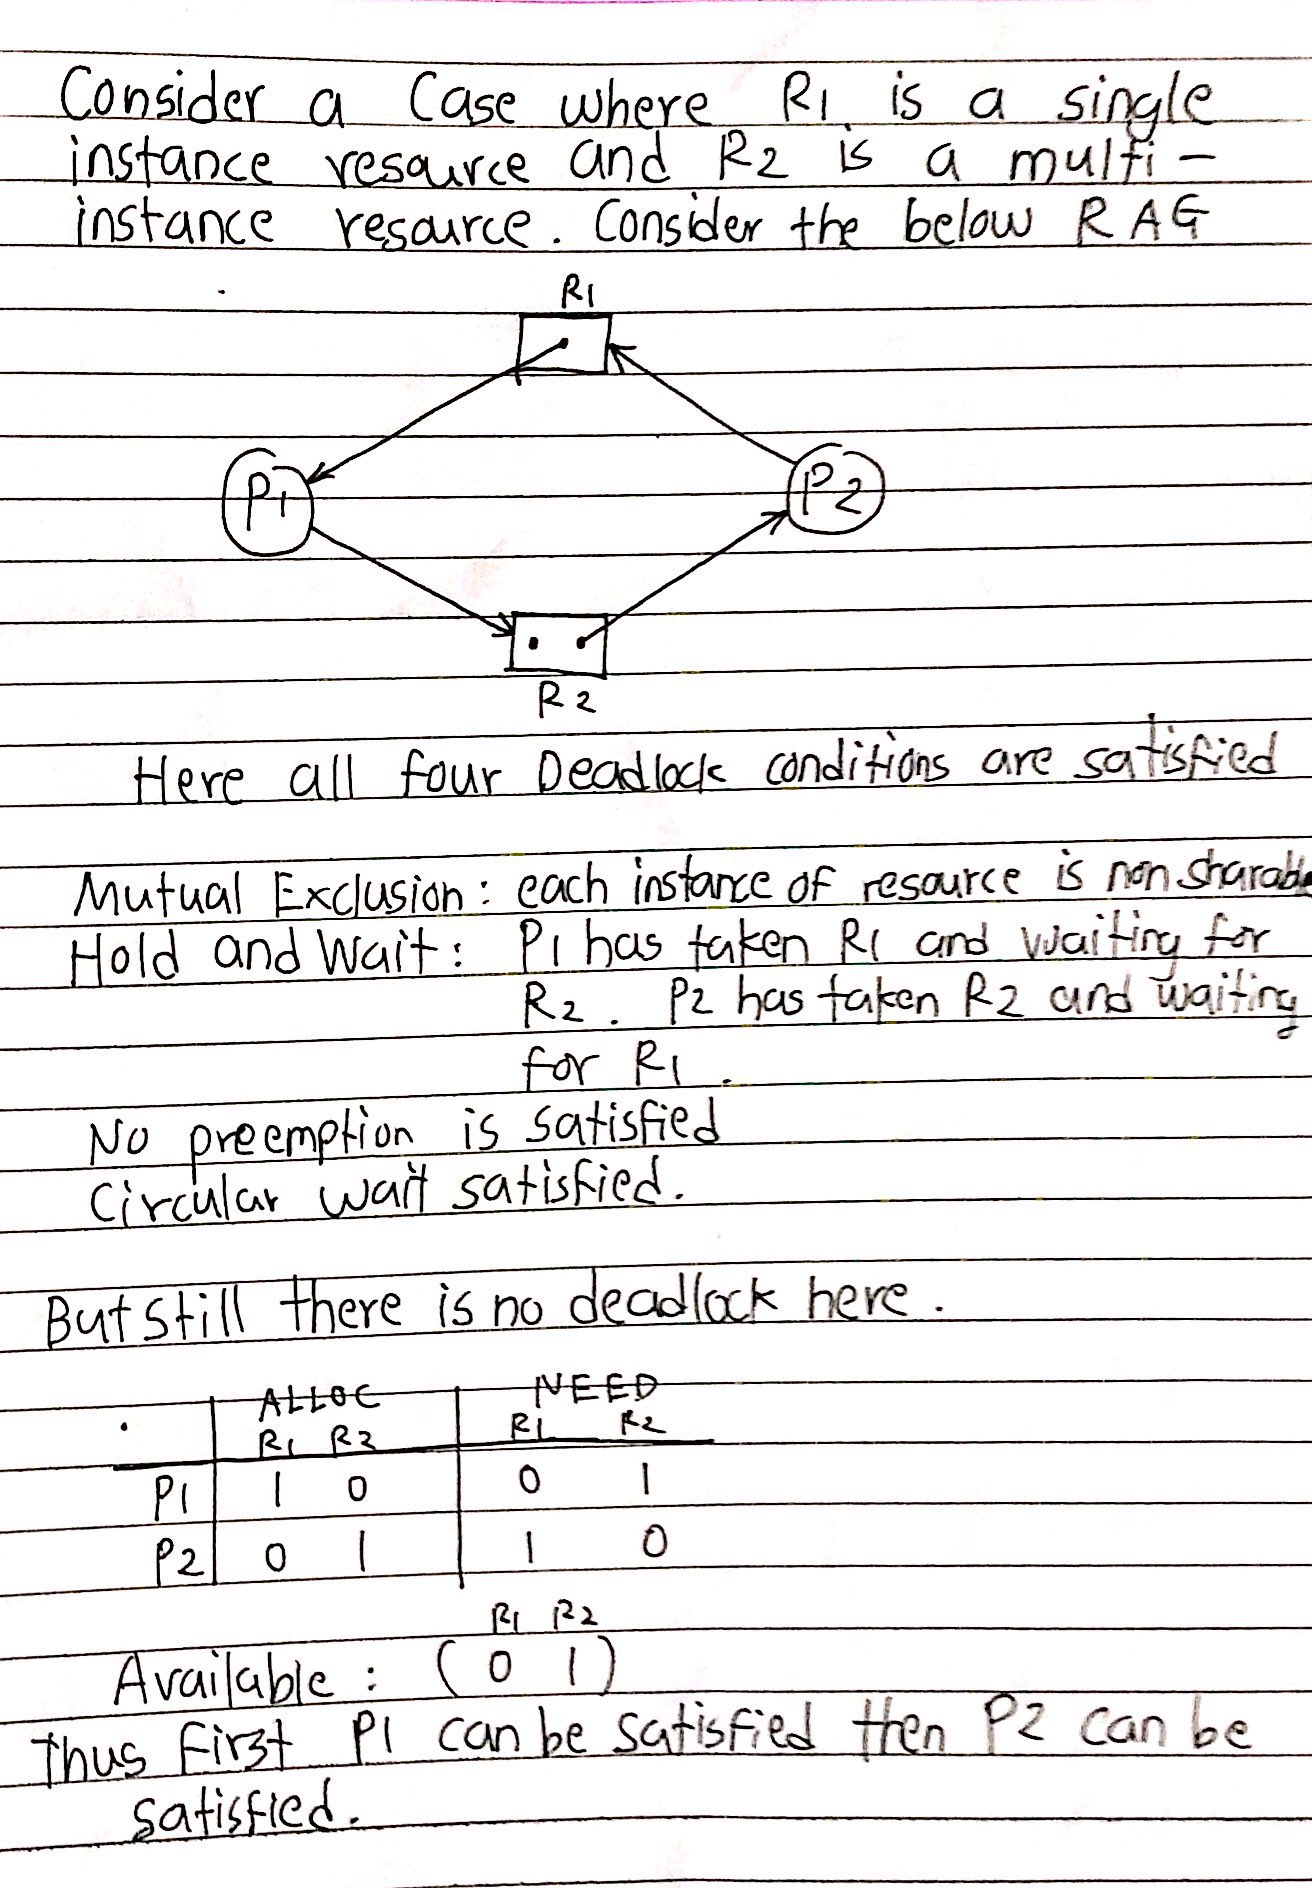 Consider a Case where R1 is a single
instance resource and R2 is a multi-
instance resource. Consider the below RAG
R1
P1 P2
R2
Here all four Deadlock conditions are satisfied
Mutual Exclusion: each instance of resource is non sharable
Hold and Wait: P1 has taken R1 and waiting for
R2. P2 has taken R2 and waiting
for R1.
No preemption is satisfied
Circular wait satisfied.
But still there is no deadlock here.
ALLOC NEED
R1 R2 R1 R2
P1 1 0 0 1
P2 0 1 1 0
R1 R2
Available : (0 1)
Thus First P1 can be satisfied then P2 can be
satisfied.